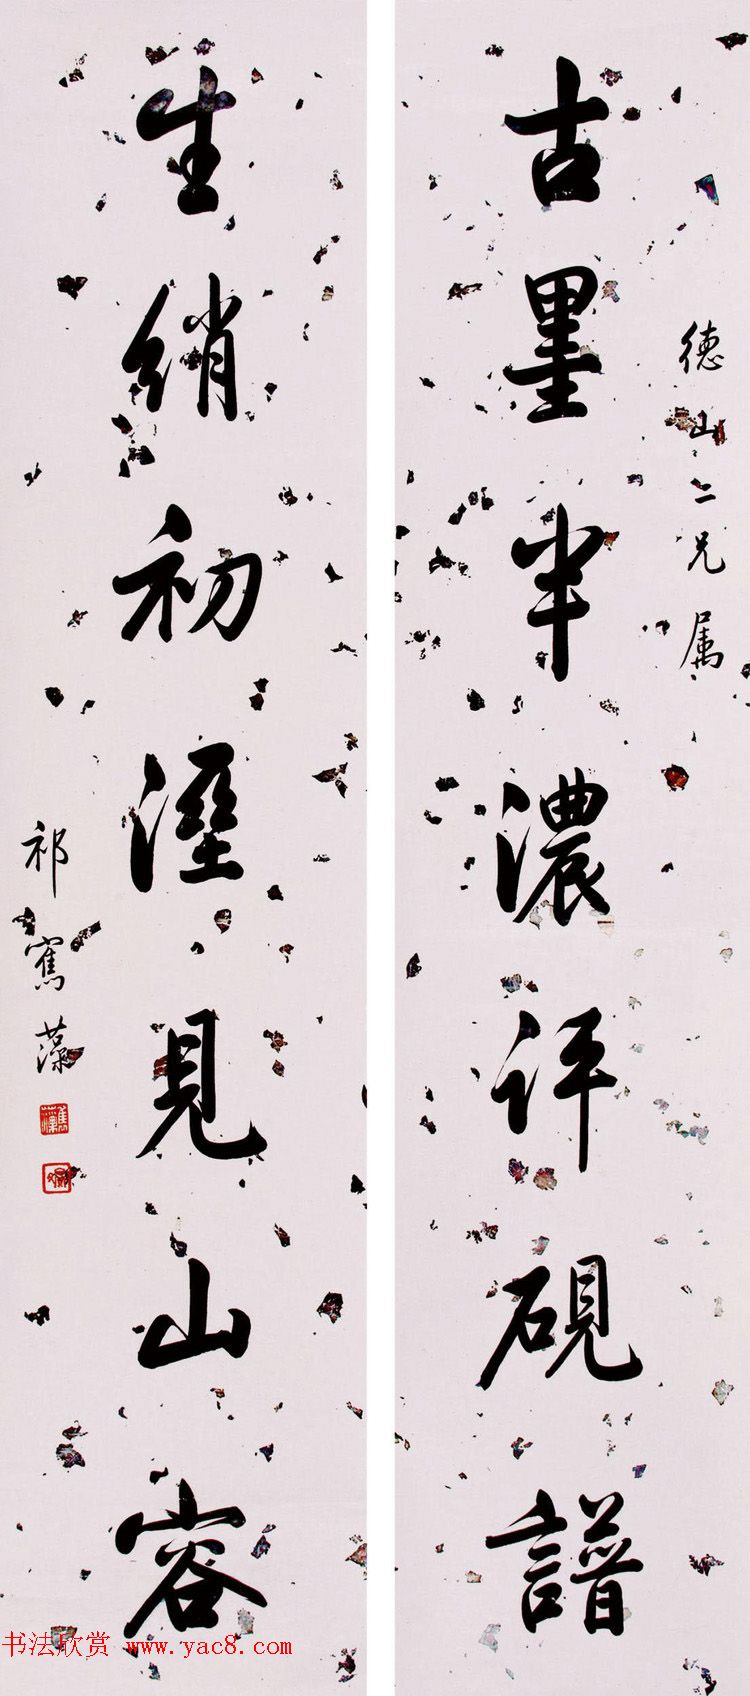 德山二兄属
古墨半濃評硯譜
生綃初溼見山容
祁寯藻
书法欣赏 www.yac8.com